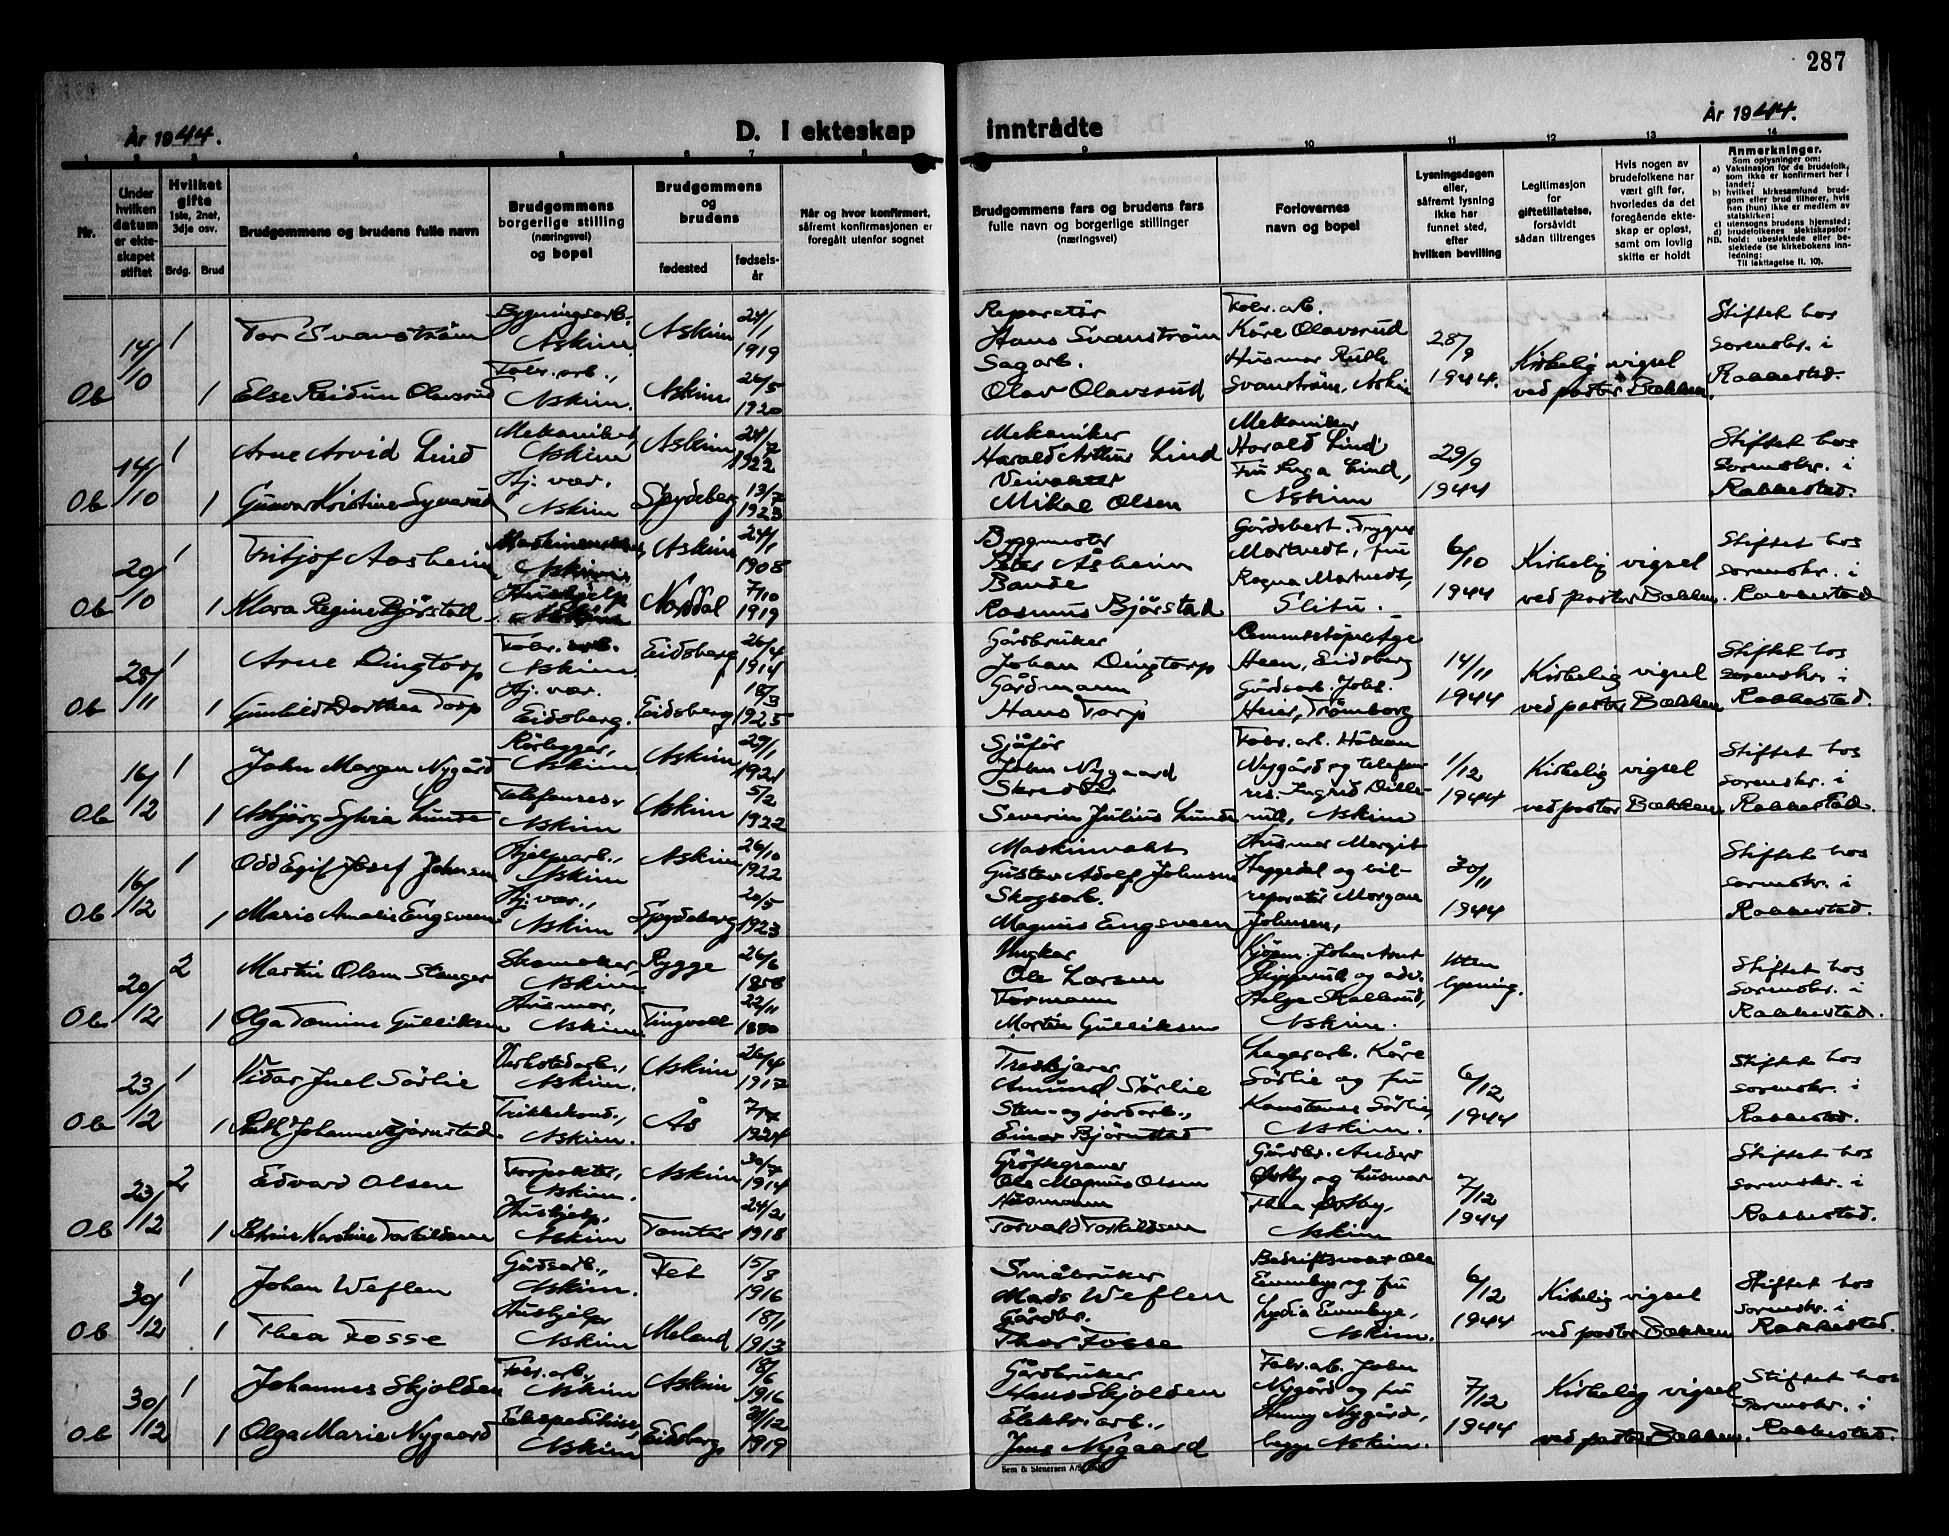 287
År 1944.
D. I ekteskap inntrådte
År 1944.
1 2 3 4 5 6 7 8 9 10 11 12 13 14
Nr.
Under hvilken datum er ekteskapet stiftet
Hvilket gifte 1ste, 2net, 3dje osv.
Brdg. Brud
Brudgommens og brudens fulle navn
Brudgommens borgerlige stilling (næringsvei) og bopel
Brudgommens og brudens
fødested
fødselsår
Når og hvor konfirmert, såfremt konfirmasjonen er foregått utenfor sognet
Brudgommens fars og brudens fars fulle navn og borgerlige stillinger (næringsvei)
Forlovernes navn og bopel
Lysningsdagen eller, såfremt lysning ikke har funnet sted, efter hvilken bevilling
Legitimasjon for giftetillatelse, forsåvidt sådan tiltrenges
Hvis nogen av brudefolkene har vært gift før, hvorledes da det foregående ekteskap er opløst, samt om lovlig skifte er holdt
Anmerkninger.
Som oplysninger om:
a) Vaksinasjon for de brudefolk, som ikke er konfirmert her i landet;
b) hvilket kirkesamfund brudgom eller brud tilhører, hvis han (hun) ikke er medlem av statskirken;
c) utensogns brudens hjemsted;
d) brudefolkenes slektskapsforhold: ubeslektede eller beslektede (se kirkebokens innledning:
NB.
Til iakttagelse II. 10).
Ob 14/10 1 Tor Svanstrøm Bygningsarb. Askim. Askim 24/1 1919
1 Else Reidun Olavsrud Fabr. arb., Askim. Askim 26/5 1920
Reparatør Hans Svanstrøm
Sagarb. Olav Olavsrud
Fabr. arb. Kåre Olavsrud Husmor Ruth Svanstrøm, Askim
28/9 1944.
Kirkelig vigsel ved pastor Bækken.
Stiftet hos sorenskr. i Rakkestad.
Ob 14/10 1 Arne Arvid Lind Mekaniker, Askim Askim 24/7 1922
1 Gunvor Kristine Hj. vær. Askim Spydeberg 13/7 1923
Mekaniker Harald Arthur Lind
Mikal Olsen
Mekaniker Harald Lind Fru Inga Lind, Askim
29/9 1944
Stiftet hos sorenskr. i Rakkestad.
Ob 20/10 1 Fritjof Aasheim Askim Askim 24/1 1908
1 Klara Regine Bjørstad Hushjelp Norddal 7/10 1919
Byggmester Peter Åsheim
Bonde Rasmus Bjørstad
Gårdsbest. Trygve Martvedt, fru Ragna Martvedt, Slitu.
6/10 1944
Kirkelig vigsel ved pastor Bækken.
Stiftet hos sorenskr. i Rakkestad
Ob 28/11 1 Arne Dingtorp Fabr. arb. Askim. Eidsberg 26/4 1914
1 Gunhild Dorthea Torp Hj. vær. Eidsberg. Eidsberg 18/3 1925
Gårdbruker Johan Dingtorp
Gårdmann Hans Torp
Heen, Eidsberg Gårdsarb. Johs. Heier, Trømborg
14/11 1944
Kirkelig vigsel ved pastor Bækken
Stiftet hos sorenskr. i Rakkestad.
Ob 16/12 1 John Morgan Nygård Rørlegger, Askim Askim 29/1 1921
1 Asbjørg Sylvia Lunde Telefonres. Askim Askim 5/2 1922
Sjåfør John Nygaard
Skredder Severin Julius Lunde
Fabr. arb. Håkon Nygård og telefonres. Ingrid Dillerud, Askim
1/12 1944
Kirkelig vigsel ved pastor Bækken
Stiftet hos sorenskr. i Rakkestad.
Ob 16/12 1 Odd Egil Josef Johnsen Hjelpearb., Askim Askim 26/10 1922
1 Marie Amalie Engsveen Hj. vær., Askim Spydeberg 20/5 1923
Maskinvakt Gustav Adolf Johnsen
Skogsarb. Magnus Engsveen
Husmor Margit Heggedal og bilreparatør Morgan Johnsen,
30/11 1944
Stiftet hos sorenskr. i Rakkestad.
Ob 20/12 2 Martin Olsen Stanger Skomaker, Askim. Rygge 26/6 1858
1 Olga Tomine Gulliksen Husmor, Askim Tingvoll 22/11 1880
Ungkar Ole Larsen
Formann Martin Gulliksen
Kjøpm. John Arnt Skipperud og adv. Helge Skallerud, Askim.
Uten lysning.
Stiftet hos sorenskr. i Rakkestad.
Ob 23/12 1 Vidar Juel Sørlie Verkstedarb., Askim. Askim 26/4 1917
1 Ruth Johanne Bjørnstad Trikkekond., Askim. Ås 7/7 1924
Treskjærer Amund Sørlie
Sten- og jordarb., Einar Bjørnstad
Lagerarb. Kåre Sørlie og fru Konstanse Sørlie, Askim.
6/12 1944
Stiftet hos sorenskr. i Rakkestad.
Ob 23/12 2 Edvard Olsen Askim. Askim 30/7 1914
1 Karoline Torkildsen Hushjelp, Askim Tomter 24/2 1918
Grøftegraver Ole Magnus Olsen
Husmann Torvald Torkildsen
Gårdbr. Anders Østby og husmor Thea Østby, Askim
7/12 1944
Stiftet hos sorenskr. i Rakkestad.
Ob 30/12 1 Johan Weflen Gårdsarb., Askim. Fet 15/8 1916
1 Thea Fosse Hushjelp Askim Meland 18/1 1913
Småbruker Mads Weflen
Gårdbr. Thor Fosse
Ole Eunebye og fru Lydia Eunebye, Askim.
6/12 1944
Kirkelig vigsel ved pastor Bækken
Stiftet hos sorenskr. i Rakkestad.
Ob 30/12 1 Johannes Skjolden Fabr. arb. Askim Askim 18/6 1916
1 Olga Marie Nygaard Ekspeditrise, Askim Eidsberg 31/12 1919
Gårdbruker Hans Skjolden
Elektr. arb., Jens Nygaard
Fabr. arb. John Nygård og fru Henny Nygård, begge Askim.
7/12 1944
Kirkelig vigsel ved pastor Bækken.
Stiftet hos sorenskr. i Rakkestad.
Sem & Stenersen A/S